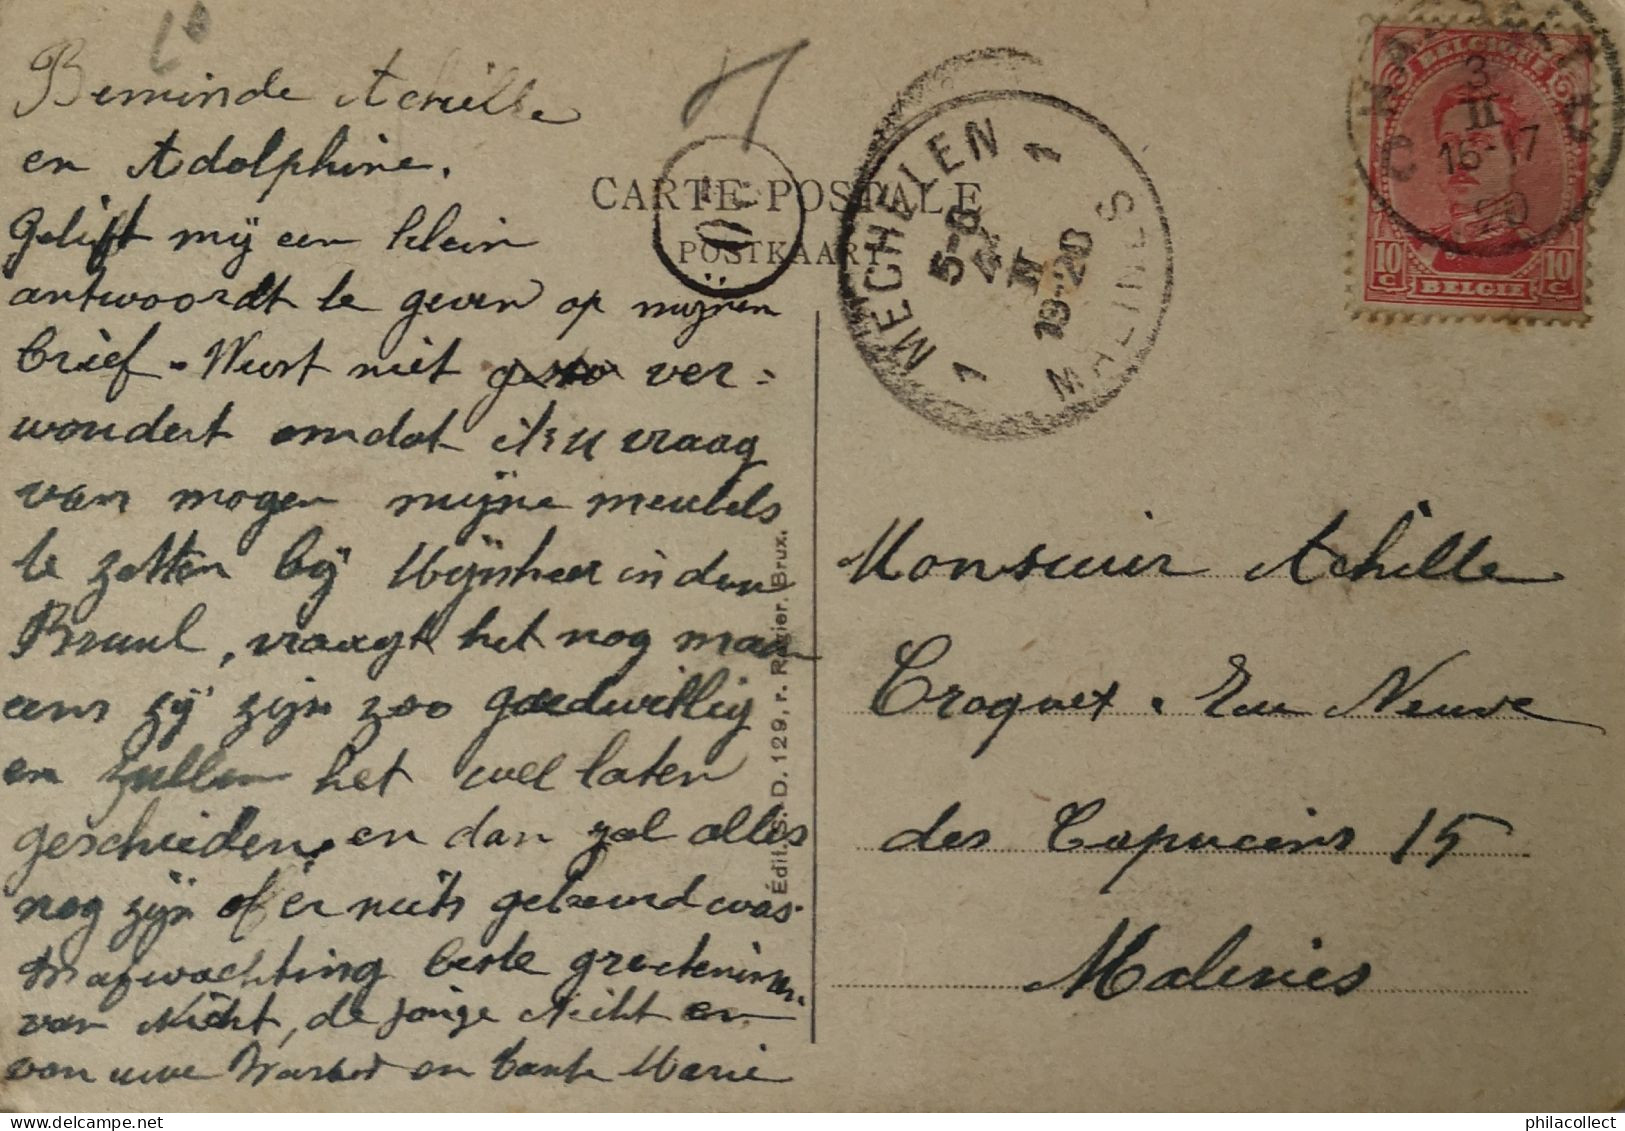 Beminde Achille
en Adolphine.
Gelieft mij een klein
antwoordt te geven op mijnen
brief. Weest niet ver=
wondert omdat ik u vraag
van mogen mijne meubels
te zetten bij Mijnheer in den
Bruul, vraagt het nog maar
eens zij zijn zoo goedwillig
en zullen het wel laten
geschieden, en dan zal alles
nog zijn of er niets gebeurd was.
In afwachting beste groetenissen
van Nicht, de jonge Nicht en
van uwe en tante Marie
CARTE POSTALE
POSTKAART
Édit. S.-D. 129, r. Rogier. Brux.
MECHELEN
1 1
5-6
4
II
19-20
MALINES
BELGIQUE
3
II
16-17
20
10 C
10 C
BELGIË
Monsieur Achille
Croquet. Rue Neuve
des Capucins 15
Malines
philacollect